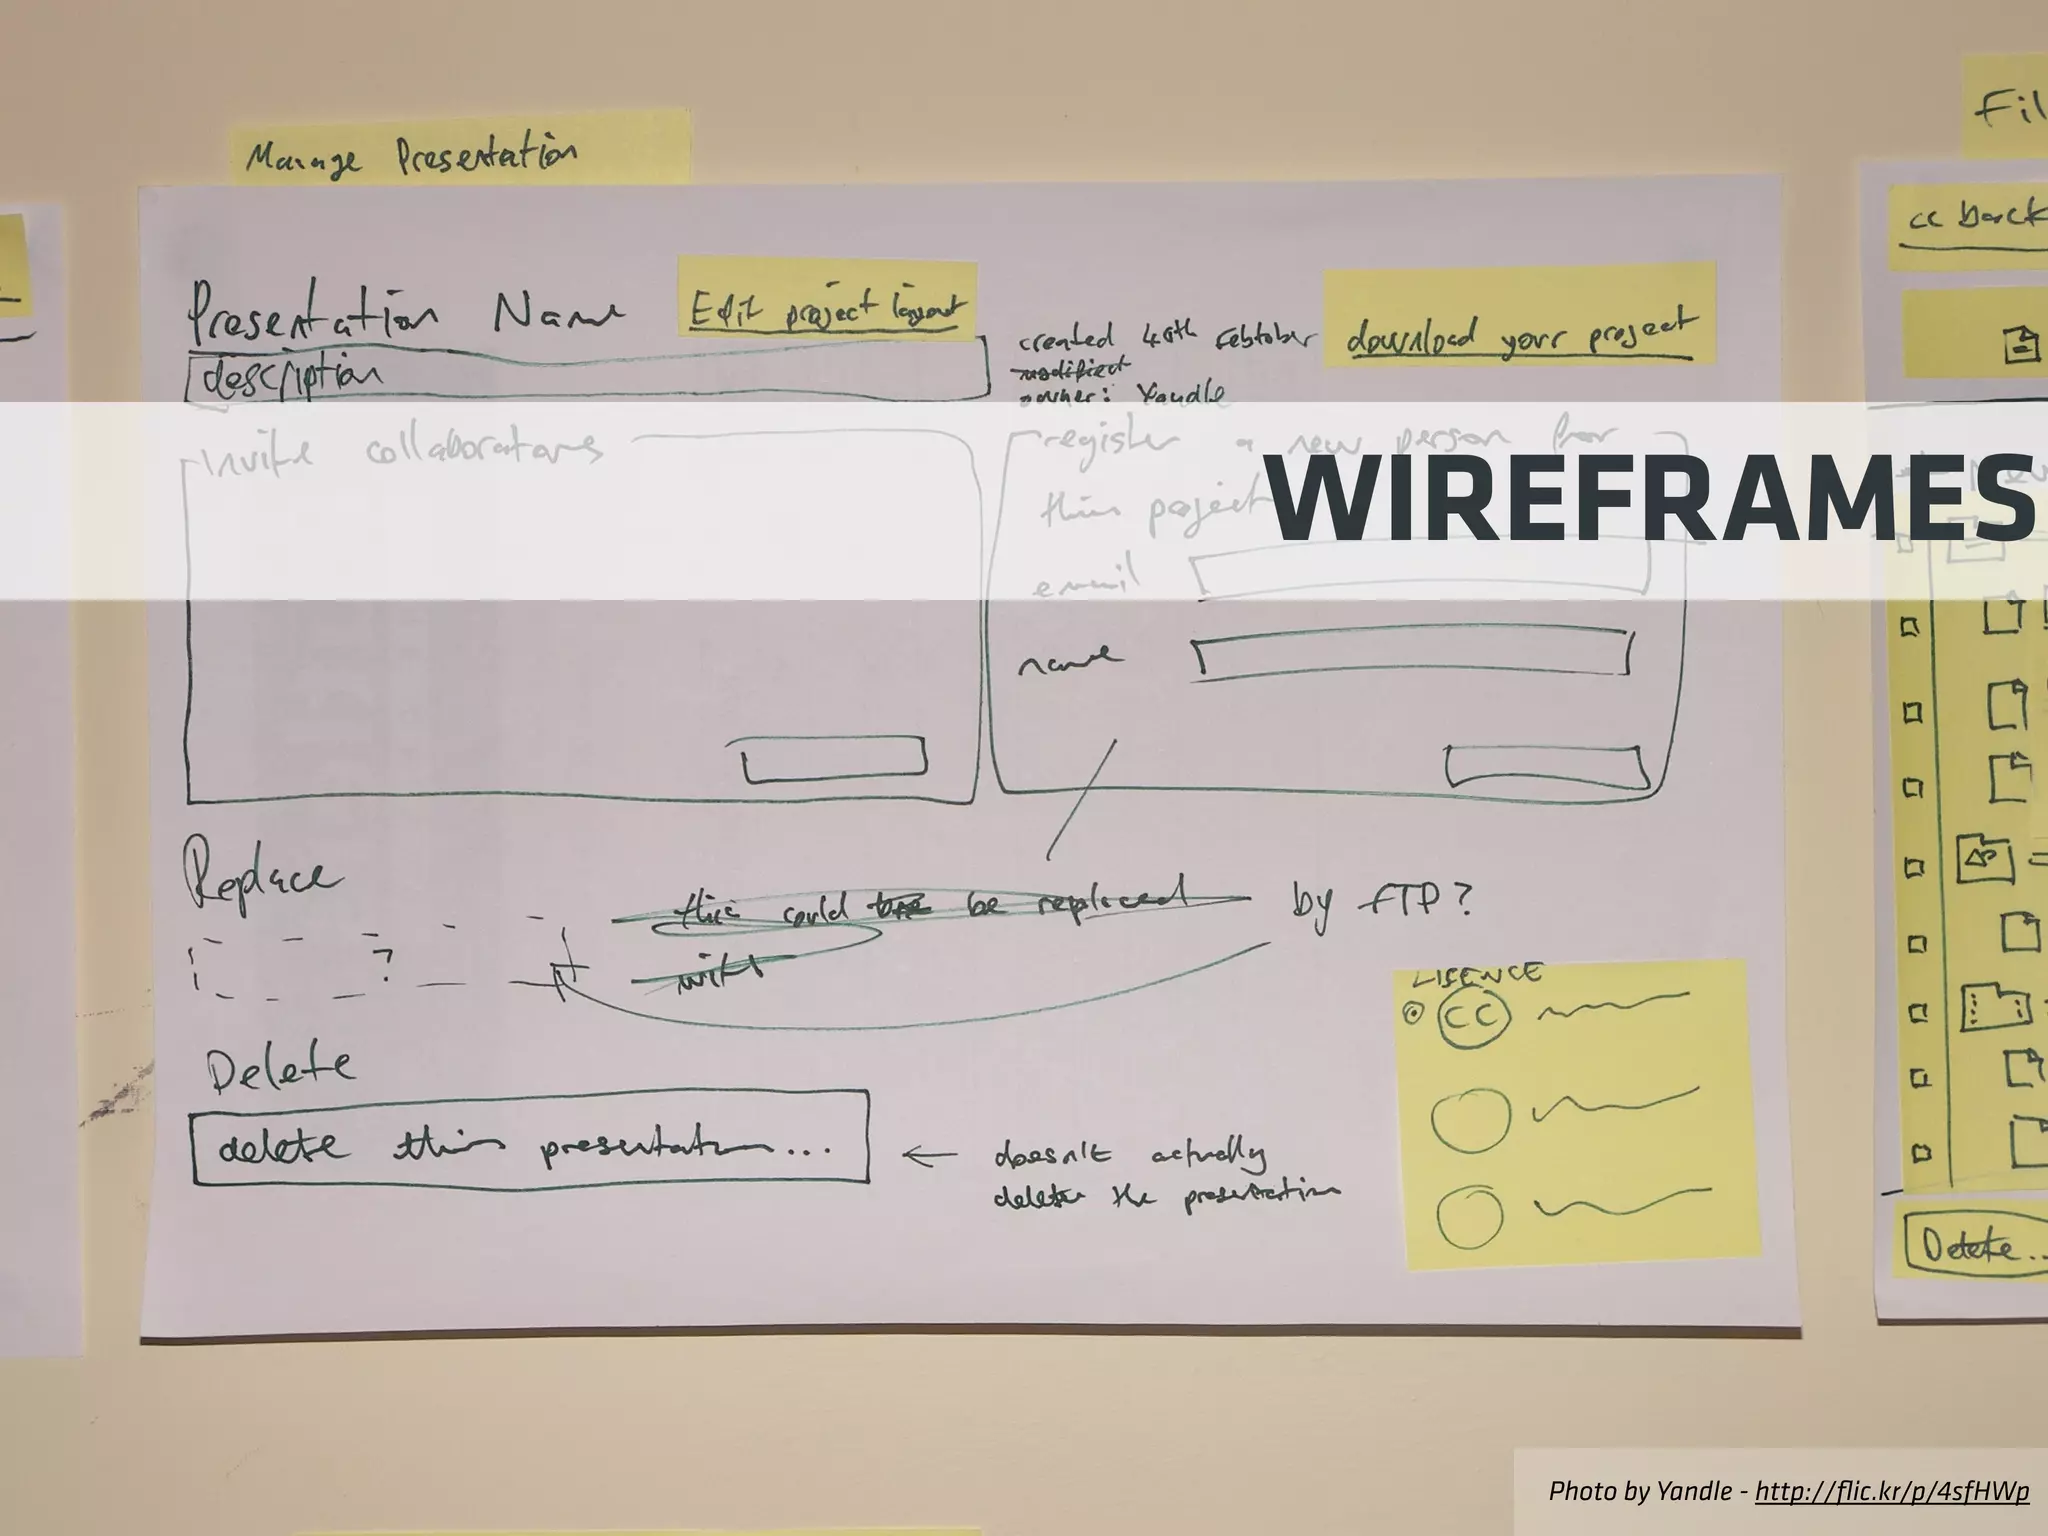 Manage Presentation
Fil
cc back
Presentation Name
Edit project layout
created 40th Febtober
download your project
modified
owner: Yandle
description
Invite collaborators
register a new person for
this project
WIREFRAMES
email
name
Replace
this could be replaced
by FTP?
?
with
LISENCE
CC
Delete
delete this presentation...
doesn't actually
delete the presentation
Delete...
Photo by Yandle - http://flic.kr/p/4sfHWp